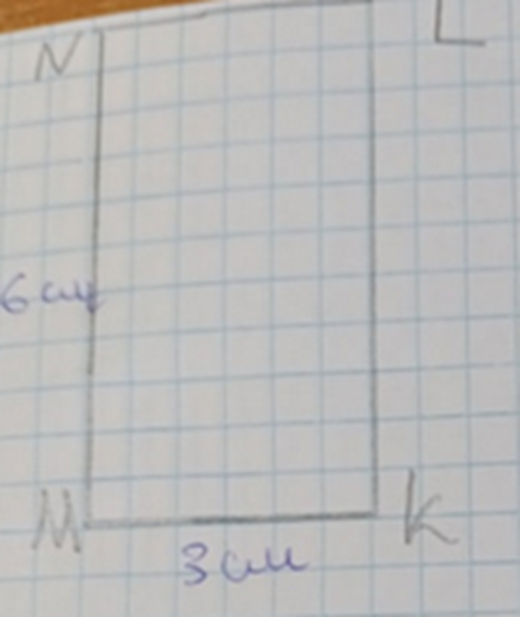 N L
6 см
M K
3 см